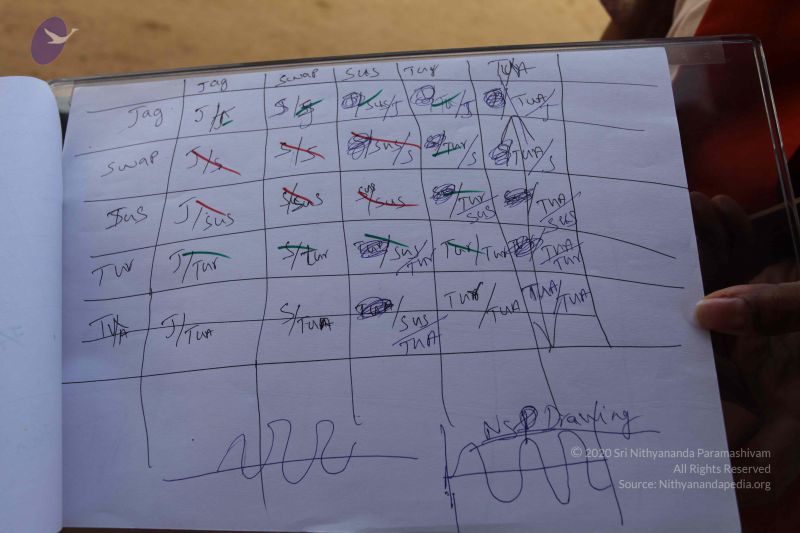 Jag Swap Sus Tur TurA
Jag J/J S/J Sus/J Tur/J TurA/J
Swap J/S S/S Sus/S Tur/S TurA/S
Sus J/Sus S/Sus Sus/Sus Tur/Sus TurA/Sus
Tur J/Tur S/Tur Sus/Tur Tur/Tur TurA/Tur
TurA J/TurA S/TurA Sus/TurA Tur/TurA TurA/TurA
Drawing
© 2020 Sri Nithyananda Paramashivam
All Rights Reserved
Source: Nithyanandapedia.org